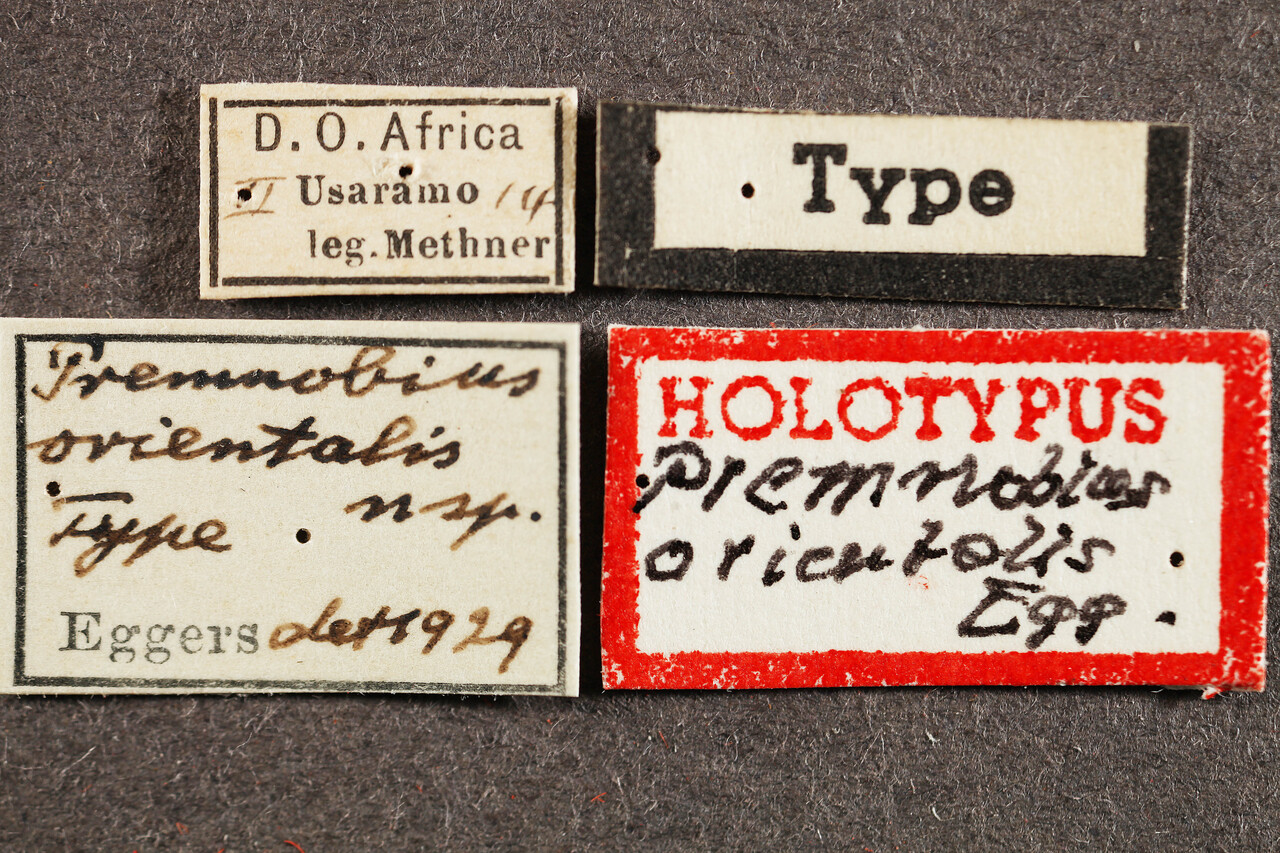 D. O. Africa
II Usaramo 14
leg. Methner
Type
Premnobius
orientalis
n sp.
Type
Eggers det 1929
HOLOTYPUS
Premnobius
orientalis
Egg.